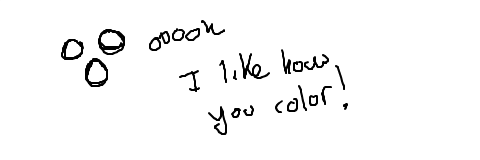 ooooh
I like how
you color!